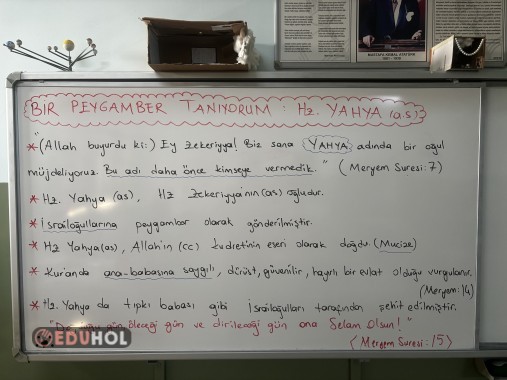 BİR PEYGAMBER TANIYORUM : Hz. YAHYA (a.s)
"
* (Allah buyurdu ki:) Ey Zekeriyya! Biz sana YAHYA adında bir oğul
müjdeliyoruz. Bu adı daha önce kimseye vermedik." (Meryem Suresi: 7)
* Hz. Yahya (as), Hz Zekeriyya'nın (as) oğludur.
* İsrailoğullarına peygamber olarak gönderilmiştir.
* Hz Yahya (as), Allah'ın (cc) kudretinin eseri olarak doğdu. (Mucize)
* Kur'anda ana-babasına saygılı, dürüst, güvenilir, hayırlı bir evlat olduğu vurgulanır.
(Meryem: 14)
* Hz. Yahya da tıpkı babası gibi İsrailoğulları tarafından şehit edilmiştir.
gün öleceği gün ve dirileceği gün ona Selam Olsun!"
(Meryem Suresi: 15)
EDUHOL
MUSTAFA KEMAL ATATÜRK